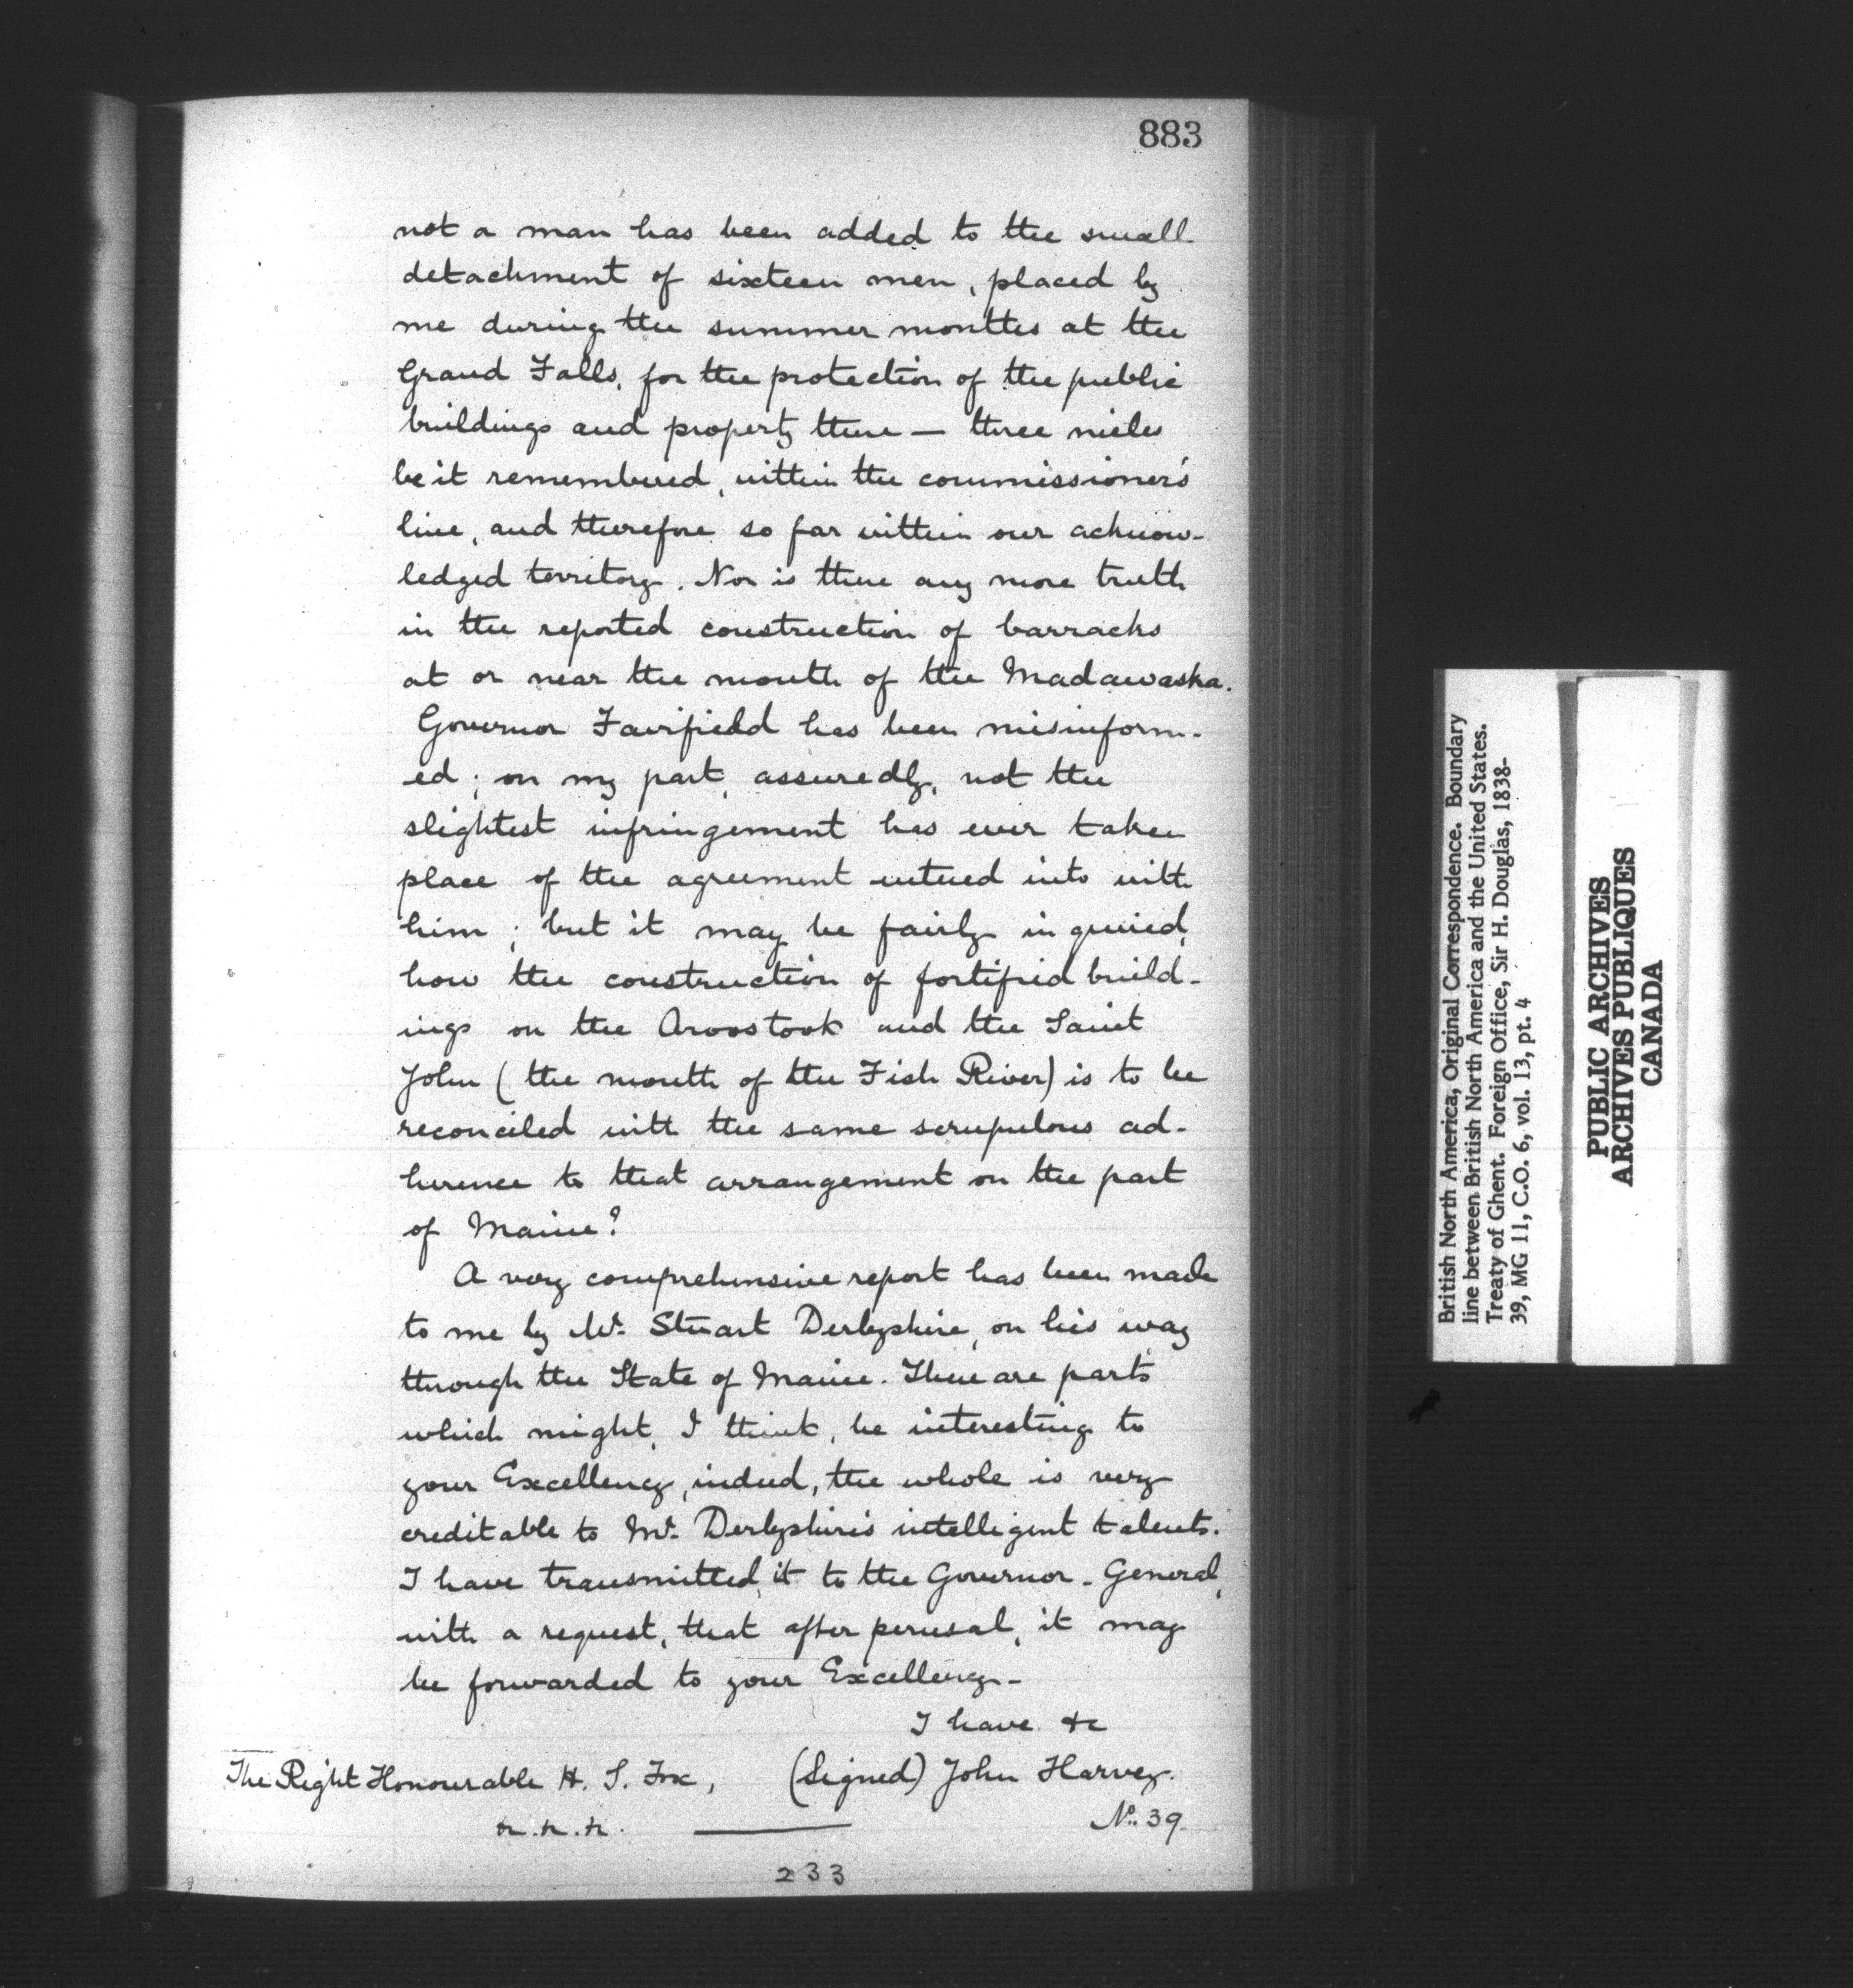 883
not a man has been added to the small
detachment of sixteen men, placed by
me during the summer months at the
Grand Falls, for the protection of the public
buildings and property there — three miles
be it remembered, within the commissioner's
line, and therefore so far within our acknow-
ledged territory. Nor is there any more truth
in the reported construction of barracks
at or near the mouth of the Madawaska.
Governor Fairfield has been misinform-
ed; on my part, assuredly, not the
slightest infringement has ever taken
place of the agreement entered into with
him; but it may be fairly inquired,
how the construction of fortified build-
ings on the Aroostook and the Saint
John (the mouth of the Fish River) is to be
reconciled with the same scrupulous ad-
herence to that arrangement on the part
of Maine?
A very comprehensive report has been made
to me by Mr. Stuart Derbyshire, on his way
through the State of Maine. There are parts
which might, I think, be interesting to
your Excellency, indeed, the whole is very
creditable to Mr. Derbyshire's intelligent talents.
I have transmitted it to the Governor-General,
with a request, that after perusal, it may
be forwarded to your Excellency-
I have &c
The Right Honourable H. S. Fox, (Signed) John Harvey.
&c. &c. &c. No. 39
233
British North America, Original Correspondence. Boundary
line between British North America and the United States.
Treaty of Ghent. Foreign Office, Sir H. Douglas, 1838-
39, MG 11, C.O. 6, vol. 13, pt. 4
PUBLIC ARCHIVES
ARCHIVES PUBLIQUES
CANADA